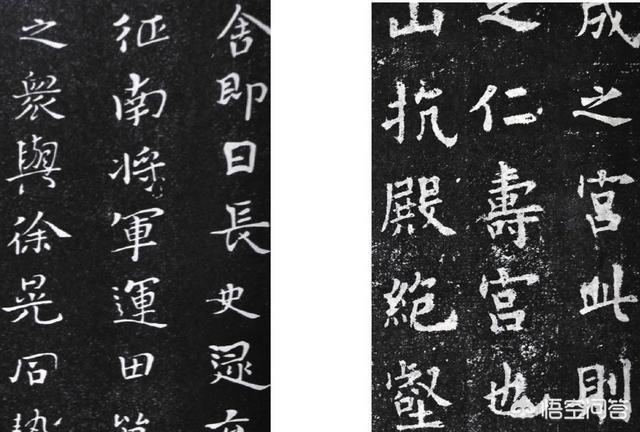 舍即日長史逯充
征南將軍運田單
之衆與徐晃同勢
成之宮此則
之仁壽宮也
山抗殿絕壑
悟空问答